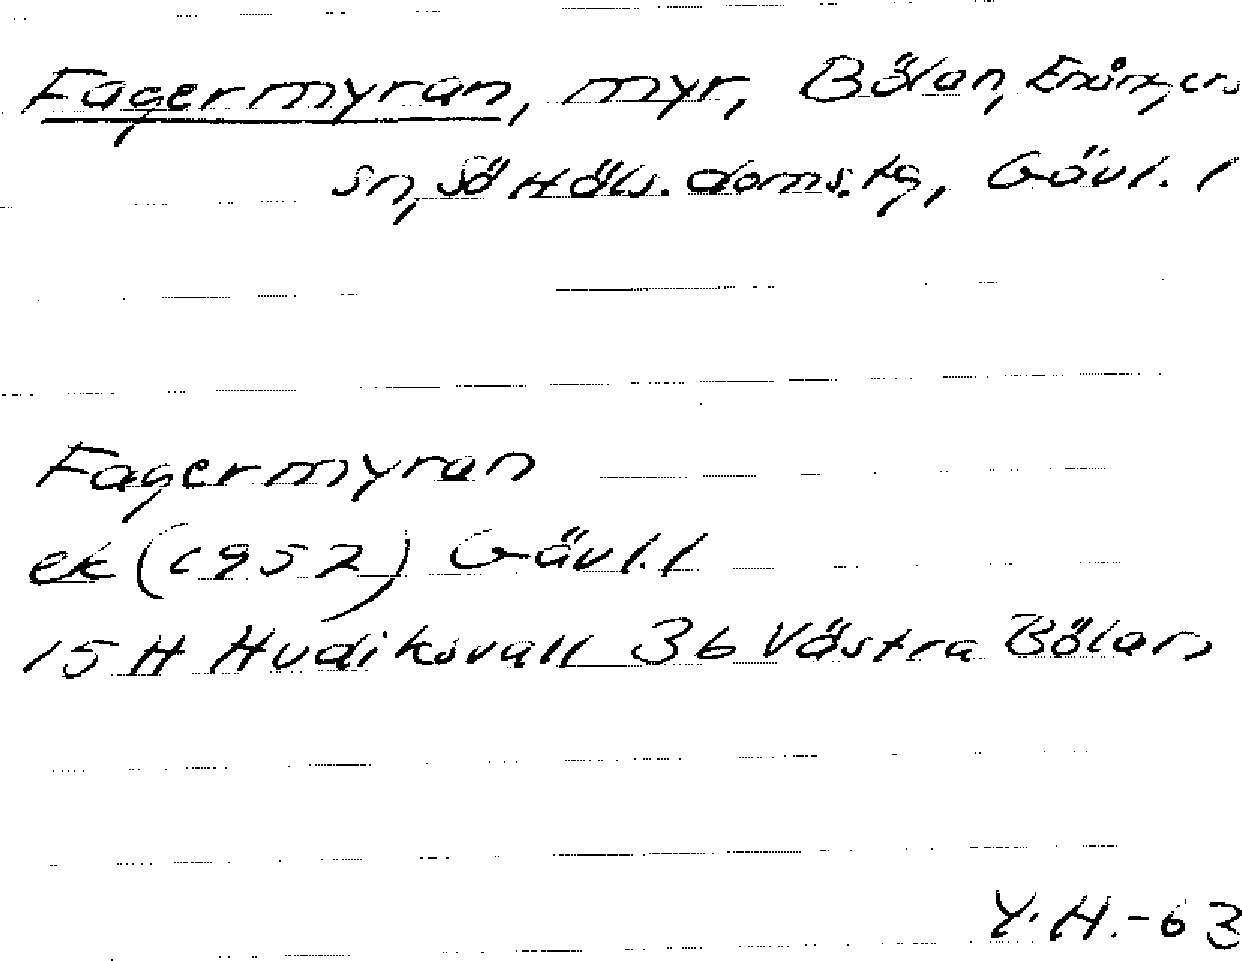 Fagermyran, myr, Bölan, Enångers
sn, Sö Häls. doms.tg, Gävl. l
Fagermyran
ek (1952) Gävl. l
15 H Hudiksvall 3b Västra Bölan
Y.H.-63